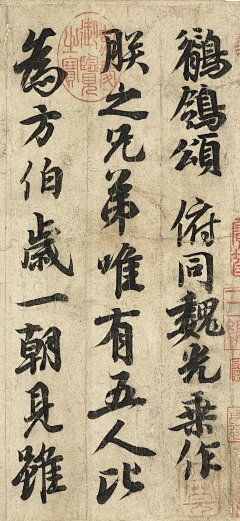 鶺鴒頌 俯同魏光乗作
朕之兄弟唯有五人比
為方伯歳一朝見雖